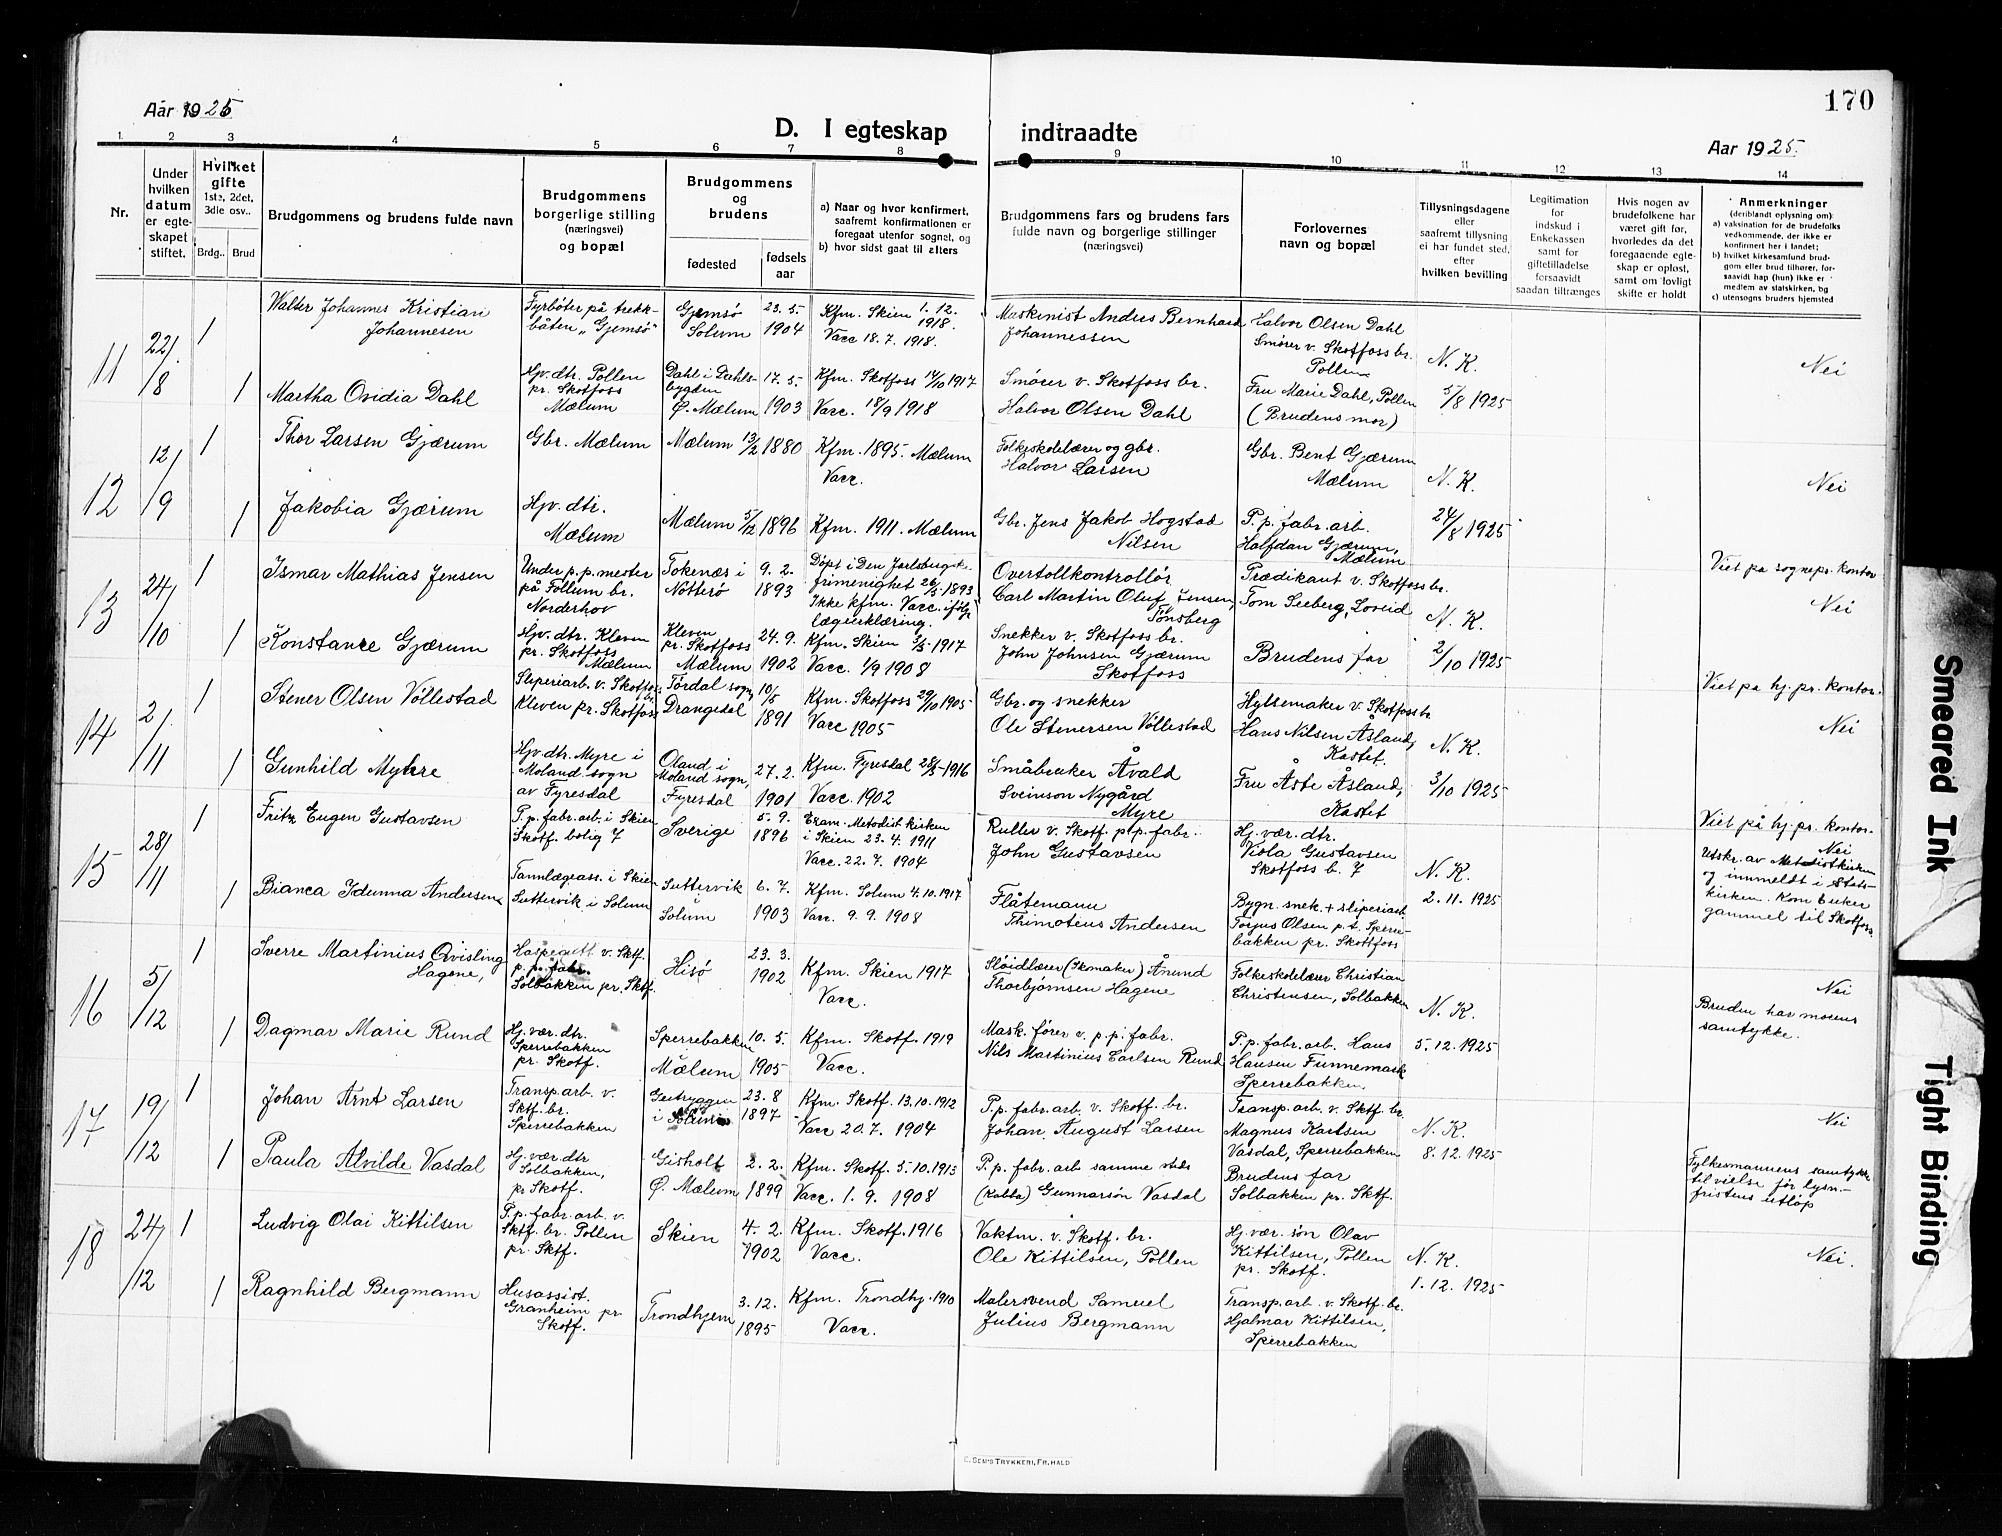 170
Aar 1925
D. I egteskap indtraadte
Aar 1925.
1. 2 3 4 5 6 7 8 9 10 11 12 13 14
Nr.
Under hvilken datum er egteskapet stiftet.
Hvilket gifte
1ste, 2det, 3die osv..
Brdg.. Brud
Brudgommens og brudens fulde navn
Brudgommens borgerlige stilling (næringsvei) og bopæl
Brudgommens og brudens
fødested
fødselsaar
a) Naar og hvor konfirmert, saafremt konfirmationen er foregaat utenfor sognet, og
b) hvor sidst gaat til alters
Brudgommens fars og brudens fars fulde navn og borgerlige stillinger (næringsvei)
Forlovernes navn og bopæl
Tillysningsdagene eller saafremt tillysning ei har fundet sted, efter hvilken bevilling
Legitimation for indskud i Enkekassen samt for giftetilladelse forsaavidt saadan tiltrænges
Hvis nogen av brudefolkene har været gift før, hvorledes da det foregaaende egteskap er opløst, samt om lovligt skifte er holdt
Anmerkninger (deriblandt oplysning om):
a) vaksination for de brudefolks vedkommende, der ikke er konfirmert her i landet;
b) hvilket kirkesamfund brudgom eller brud tilhører, forsaavidt hap (hun) ikke er medlem av statskirken, og
c) utensogns bruders hjemsted
11
22/8
1
Walter Johannes Kristian Johannesen
Fyrbøter på trekkbåten "Gjemsø"
Gjemsø Solum
23. 5. 1904
Kfm. Skien 1. 12. 1918.
Vacc 18. 7. 1918.
Maskinist Anders Bernhard Johannessen
Halvor Olsen Dahl
Smører v. Skotfoss br. Pollen
N. K.
Nei
1
Martha Ovidia Dahl
Hv. dtr. Pollen pr. Skotfoss Mælum
Dahl i Dahlsbygden Ø. Mælum
17. 5. 1903
Kfm. Skotfoss 14/10 1917
Vacc. 18/9 1918
Smører v. Skotfoss br.
Halvor Olsen Dahl
Fru Marie Dahl, Pollen (Brudens mor)
5/8 1925
12
12/9
1
Thor Larsen Gjærum
Gbr. Mælum
Mælum
13/2 1880
Kfm. 1895. Mælum
Vacc.
Folkeskolelærer og gbr.
Halvor Larsen
Gbr. Bent Gjærum Mælum
N. K.
Nei
1
Jakobia Gjærum
Hjv. dtr. Mælum
Mælum
5/12 1896
Kfm. 1911. Mælum
Gbr. Jens Jakob Hogstad Nilsen
P. p. fabr. arb. Halfdan Gjærum, Mælum
24/8 1925
13
24/10
1
Ismar Mathias Jensen
Under p. p. mester på Follum br. Norderhov
Tokenæs i Nøtterø
9. 2. 1893
Døpt i Den Jarlsbergsk. frimenighet 26/3-1893
Ikke kfm. Vacc. ifølge lægeerklæring.
Overtollkontrollør
Carl Martin Oluf Jensen, Tønsberg
Prædikant v. Skotfoss br.
Tom Seeberg, Løveid
N. K.
Viet på sognepr. kontor
Nei
1
Konstance Gjærum
Hjv. dtr. Kleven pr. Skotfoss Mælum
Kleven pr. Skotfoss Mælum
24. 9. 1902
Kfm. Skien 3/5-1917
Vacc. 1/9 1908
Snekker v. Skotfoss br.
John Johnsen Gjærum Skotfoss
Brudens far
2/10 1925
14
2/11
1
Stener Olsen Vøllestad
Sliperiarb. v. Skotfoss br. Kleven pr. Skotfoss
Tørdal sogn, Drangedal
10/5 1891
Kfm. Skotfoss 29/10 1905
Vacc 1905
Gbr. og snekker
Ole Stenersen Vøllestad
Hylsemaker v. Skotfoss br
Hans Nilsen Åsland, Kastet.
N. K.
Viet på hj. pr. kontor.
Nei
1
Gunhild Myhre
Hjv. dtr. Myre i Moland sogn av Fyresdal
Øland i Moland sogn, Fyresdal
27. 2. 1901
Kfm. Fyresdal 28/5-1916
Vacc. 1902
Småbruker Åvald Sveinson Nygård Myre
Fru Åste Åsland, Kastet
3/10 1925
15
28/11
1
Fritz Eugen Gustavsen
P. p. fabr. arb. i Skien Skotf. bolig 7
Sverige
5. 9. 1896
Exam. Metodistkirken i Skien 23. 4. 1911
Vacc. 22. 7. 1904
Ruller v. Skotf. p. p. fabr.
John Gustavsen
Hj. vær. dtr. Viola Gustavsen Skotfoss b. 7
N. K.
Viet på hj. pr. kontor.
Nei
Utskr. av Metodistkirken og innmeldt i Statskirken.
1
Bianca Idunna Andersen
Tannlægeass. i Skien Suttervik i Solum
Suttervik Solum
6. 7. 1903
Kfm. Solum 4. 10. 1917
Vacc. 9. 9. 1908
Flåtemann Thimoteus Andersen
Bygn. snek. + sliperiarb. Torjus Olsen p. t. Sperrebakken pr. Skotfoss
2. 11. 1925
16
5/12
1
Sverre Martinius Qvisling Hagene,
Haspegutt v. Sktf. p. p. fabr. Solbakken pr. Sktf.
Hisø
23. 3. 1902
Kfm. Skien 1917
Vacc.
Sløidlærer (Skomaker) Ånund Thorbjørnsen Hagene
Folkeskolelærer Christian Christensen, Solbakken
N. K.
Nei
Bruden har morens samtykke.
1
Dagmar Marie Rund
Hj. vær. dtr. Sperrebakken pr. Skotf.
Sperrebakken Mælum
10. 5. 1905
Kfm. Skotf. 1919
Vacc.
Mask. fører v. p. p. fabr.
Nils Martinius Carlsen Rund
P. p. fabr. arb. Hans Hansen Funnemark Sperrebakken.
5. 12. 1925
17
19/12
1
Johan Arnt Larsen
Transp. arb. v. Sktf. br. Sperrebakken
Geiteryggen i Solum
23. 8 1897
Kfm. Skotf. 13. 10. 1912
Vacc 20. 7. 1904
P. p. fabr. arb. v. Skotf. br.
Johan August Larsen
Transp. arb. v. Sktf. br. Magnus Karlsen Vasdal, Sperrebakken
N. K.
Nei
1
Paula Alvilde Vasdal
Hj. vær. dtr Solbakken, pr Skotf.
Gisholt Ø. Mælum
2. 2. 1899
Kfm. Skotf. 5. 10. 1913
Vacc. 1. 9. 1908
P. p. fabr. arb samme sted
Gunnarsøn Vasdal
Brudens far Solbakken pr. Sktf.
8. 12. 1925
Fylkesmannens samtykke til vielse før lysn.-fristens utløp
18
24/12
1
Ludvig Olai Kittilsen
P. p. fabr. arb. v. Sktf. br. Pollen pr. Sktf.
Skien
4. 2. 1902
Kfm. Skotf. 1916
Vacc.
Vaktm. v. Skotf. br.
Ole Kittilsen, Pollen
Hj. vær. søn Olav Kittilsen, Pollen pr. Skotf.
N. K.
Nei.
1
Ragnhild Bergmann
Husassist. Granheim pr Skotf.
Trondhjem
3. 12. 1895
Kfm. Trondhj. 1910
Vacc.
Malersvend Samuel Julius Bergmann
Transp. arb. v. Skotf. br. Hjalmar Kittilsen, Sperrebakken
1. 12. 1925
E. SEM'S TRYKKERI, FR. HALD
Smeared Ink
Tight Binding